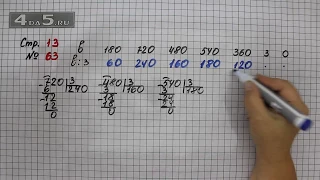 4DA5.RU
Стр. 13 b 180 720 480 540 360 3 0
№ 63 b:3 60 240 160 180 120 . .
720 3 480 3 540 3
6 240 3 160 3 180
12 18 24
12 18 24
0 0 0